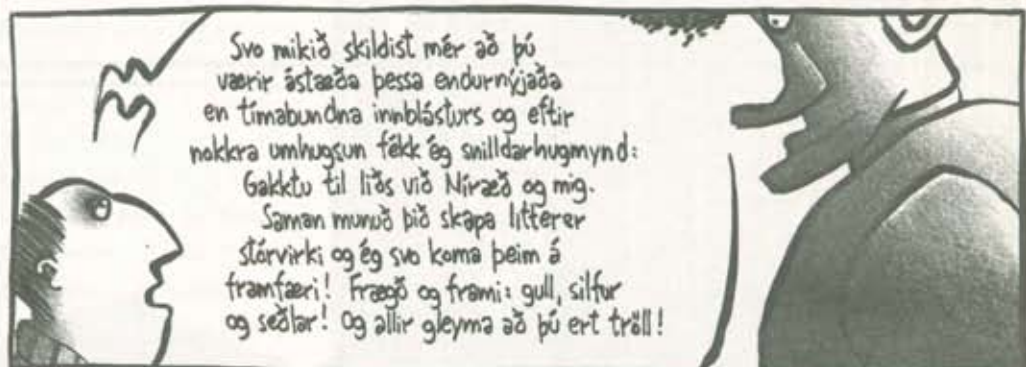 Svo mikið skildist mér að þú
værir ástæða þessa endurnýjaða
en tímabundna innblásturs og eftir
nokkra umhugsun fékk ég snilldarhugmynd:
Gakktu til liðs við Níræð og mig.
Saman munuð þið skapa litterer
stórvirki og ég svo koma þeim á
framfæri! Frægð og frami: gull, silfur
og seðlar! Og allir gleyma að þú ert tröll!